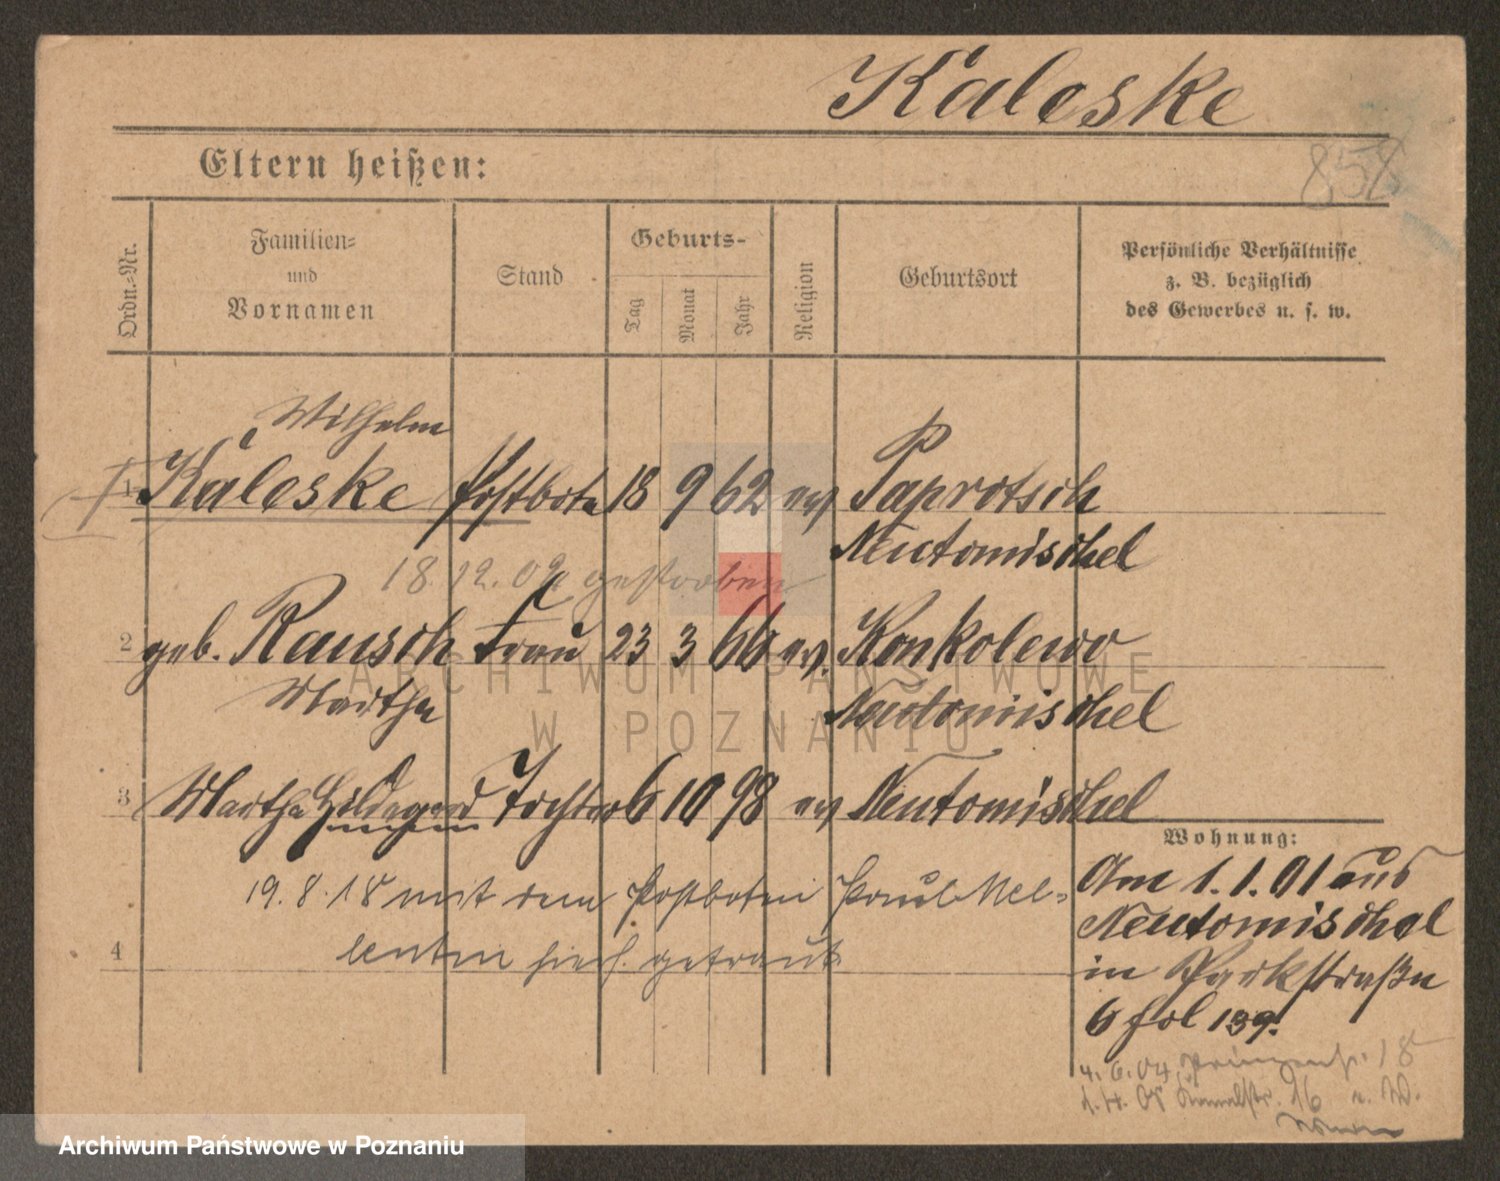 Kaleske
858
Eltern heißen:
Ordn.-Nr.
Familien-
und
Vornamen
Stand
Geburts-
Tag
Monat
Jahr
Religion
Geburtsort
Persönliche Verhältnisse
z. B. bezüglich
des Gewerbes u. s. w.
Wilhelm
1 Kaleske Postbote 18 9 62 ev Paprotsch
Neutomischel
18.12.09 gestorben
2 geb. Rausch Frau 23 3 66 ev. Konkolewo
Martha Neutomischel
3 Martha Hildegard Tochter 6 10 98 ev Neutomischel
Wohnung:
19.8.18 mit dem Postboten Paul Mel-
4 lentin hies. getraut
Am 1.1.01 aus
Neutomischel
in Parkstraße
6 fol 139.
4.6.04 Prinzenstr. 18
1.4.08 16 n. W.
ARCHIWUM PAŃSTWOWE
W POZNANIU
Archiwum Państwowe w Poznaniu